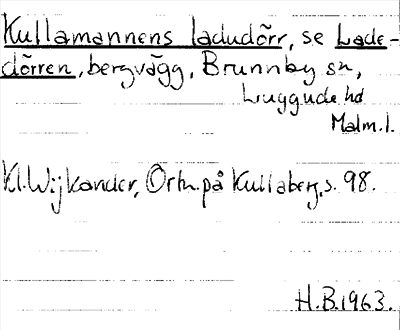 Kullamannens ladudörr, se Lade-
dörren, bergvägg, Brunnby sn,
Luggude hd
Malm. l.
Kl. Wijkander, Ortn. på Kullaberg, s. 98.
H.B. 1963.